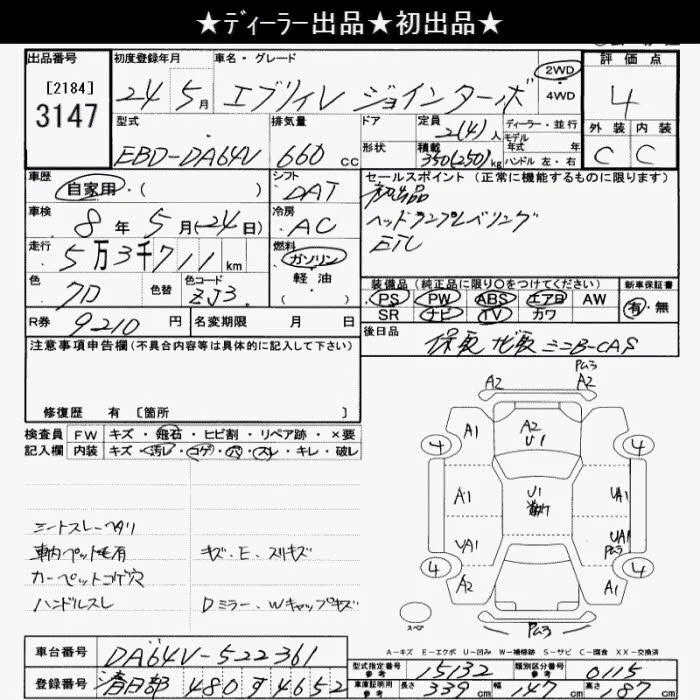 ★ディーラー出品★初出品★
出品番号 初度登録年月 車名・グレード 評価点
[2184]
3147
24 5月 エブリィV ジョインターボ 2WD 4WD 4
型式 排気量 ドア 定員 ディーラー・並行 外装 内装
EBD-DA64V 660cc 2(4)人 モデル年式 年式
形状 積載 350(250)kg ハンドル 左・右 C C
車歴 自家用・( ) シフト DAT セールスポイント (正常に機能するものに限ります)
初出品
車検 8年5月(-24日) 冷房 AC ヘッドランプレベリング
走行 5万3千711km 燃料 ガソリン・軽油・( ) ETC
色 色替 色コード ZJ3 装備品 (純正品に限り○をつけてください) 新車保証書
PS PW ABS エアB AW 有・無
SR ナビ TV カワ
R券 9210円 名変期限 月 日 後日品 保取 ナビ取 ミニB-CAS
注意事項申告欄(不具合内容等は具体的に記入して下さい)
修復歴 有 [箇所 ]
検査員 FW キズ・飛石・ヒビ割・リペア跡・×要
記入欄 内装 キズ・汚レ・コゲ・穴・スレ・キレ・破レ
シートスレ・ヘタリ
車内ペット毛有 キズ.E.スリキズ
カーペットコゲ穴
ハンドルスレ Dミラー.Wキャップキズ
A2 A2
A1 A2 U1
4 4
A1 U1 UA1
UA1 UA1
4 4
A2 A2
スペア
A-キズ E-エクボ U-凹み W-補修跡 S-サビ C-腐食 XX-交換済
車台番号 DA64V-522361
型式指定番号 参考 15132 類別区分番号 参考 0115
登録番号 480 す 4652
車庫証明用 参考 長さ 339cm 幅 147cm 高さ 187cm